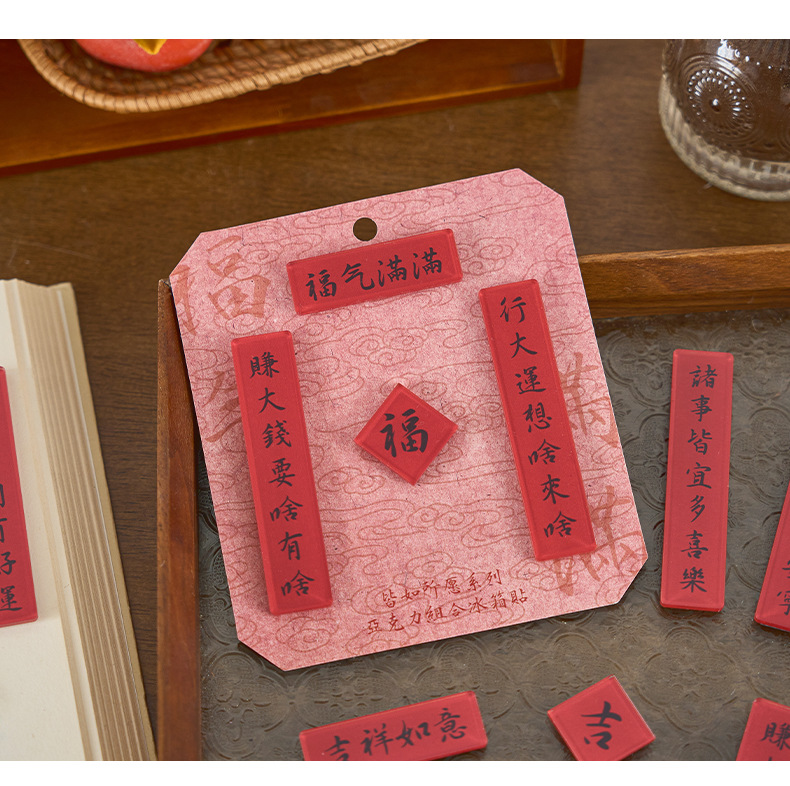 福气滿滿
行大運想啥來啥
賺大錢要啥有啥
福
皆如所愿系列
亞克力組合冰箱貼
諸事皆宜多喜樂
吉祥如意
吉
賺
好運